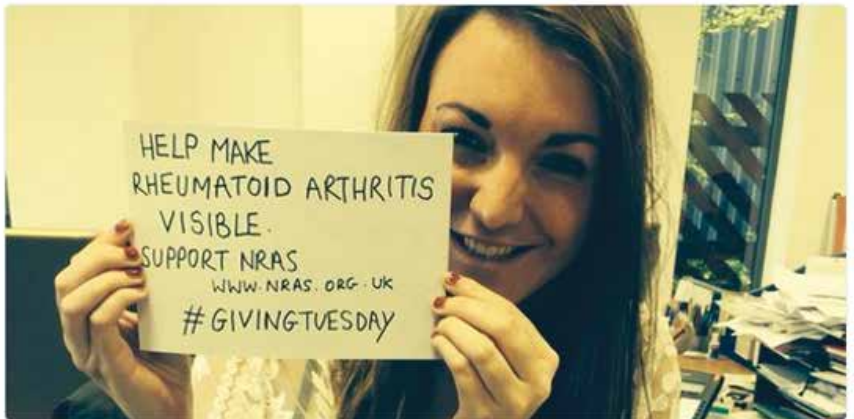 HELP MAKE
RHEUMATOID ARTHRITIS
VISIBLE.
SUPPORT NRAS
WWW.NRAS.ORG.UK
#GIVINGTUESDAY